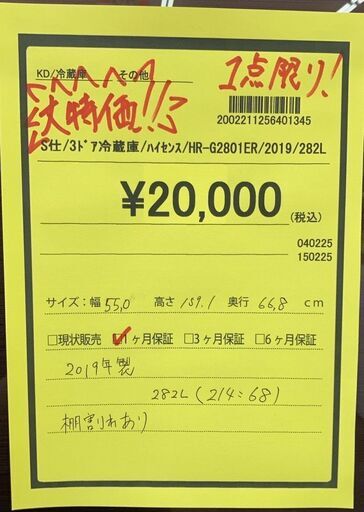 KD/冷蔵庫 その他
大特価!!
1点限り!
2002211256401345
S仕/3ﾄﾞｱ冷蔵庫/ﾊｲｾﾝｽ/HR-G2801ER/2019/282L
¥20,000 (税込)
040225
150225
サイズ:幅 55,0 高さ 159.1 奥行 66,8 cm
□現状販売 ☑1ヶ月保証 □3ヶ月保証 □6ヶ月保証
2019年製
282L (214:68)
棚割れあり